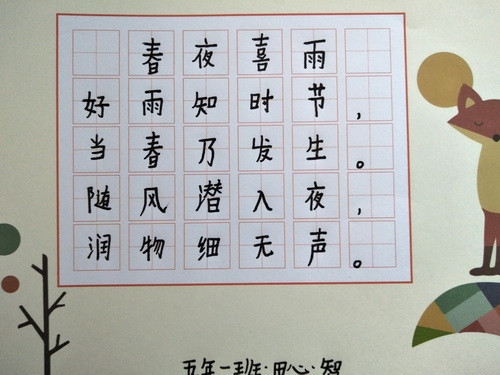 春夜喜雨
好雨知时节，
当春乃发生。
随风潜入夜，
润物细无声。
五年一班·田心·智